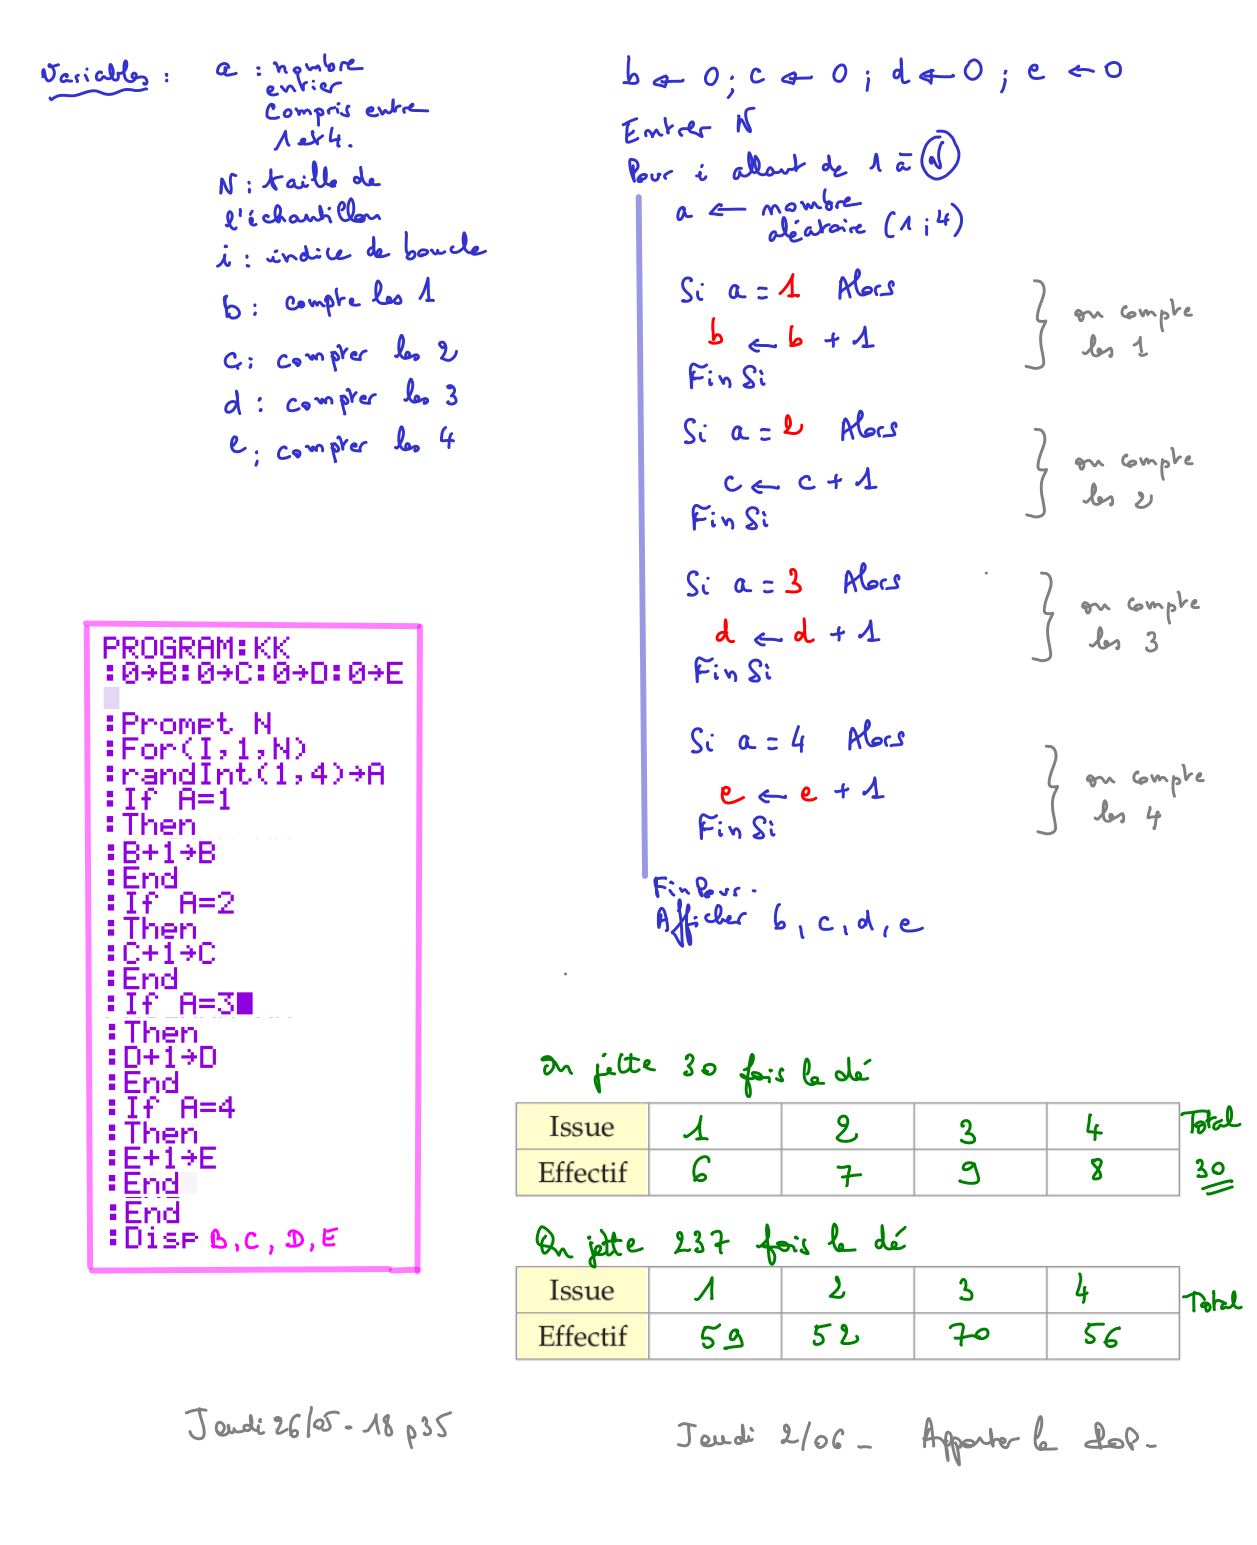 Variables :
a : nombre
entier
compris entre
1 et 4.
N : taille de
l'échantillon
i : indice de boucle
b : compte les 1
c : compter les 2
d : compter les 3
e : compter les 4
b ← 0 ; c ← 0 ; d ← 0 ; e ← 0
Entrer N
Pour i allant de 1 à N
a ← nombre
aléatoire (1 ; 4)
Si a = 1 Alors
b ← b + 1
Fin Si
on compte
les 1
Si a = 2 Alors
c ← c + 1
Fin Si
on compte
les 2
Si a = 3 Alors
d ← d + 1
Fin Si
on compte
les 3
Si a = 4 Alors
e ← e + 1
Fin Si
on compte
les 4
Fin Pour.
Afficher b, c, d, e
PROGRAM:KK
:0→B:0→C:0→D:0→E
:Prompt N
:For(I,1,N)
:randInt(1,4)→A
:If A=1
:Then
:B+1→B
:End
:If A=2
:Then
:C+1→C
:End
:If A=3
:Then
:D+1→D
:End
:If A=4
:Then
:E+1→E
:End
:End
:Disp B, C, D, E
On jette 30 fois le dé
Issue 1 2 3 4 Total
Effectif 6 7 9 8 30
On jette 237 fois le dé
Issue 1 2 3 4 Total
Effectif 59 52 70 56
Jeudi 26/05 - 18 p35
Jeudi 2/06 - Apporter le